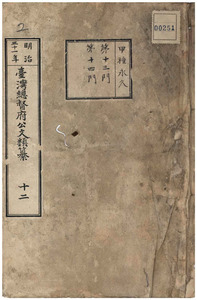 00251
甲種永久
第十三門
第十四門
明治
卅一年
臺灣總督府公文類纂
十二